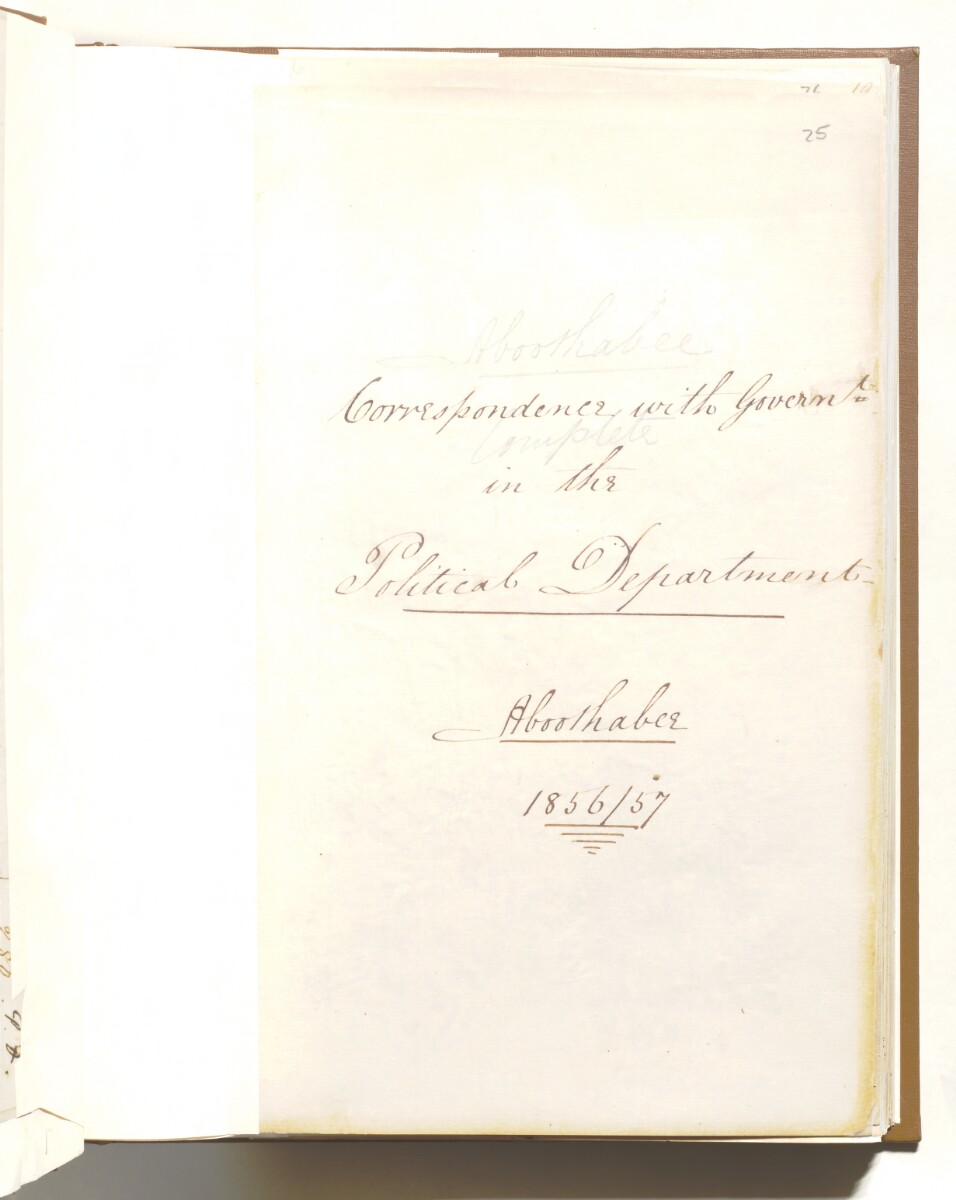 10
25
Aboothabee
Correspondence with Governt
Complete
in the
Political Department
Aboothabee
1856/57